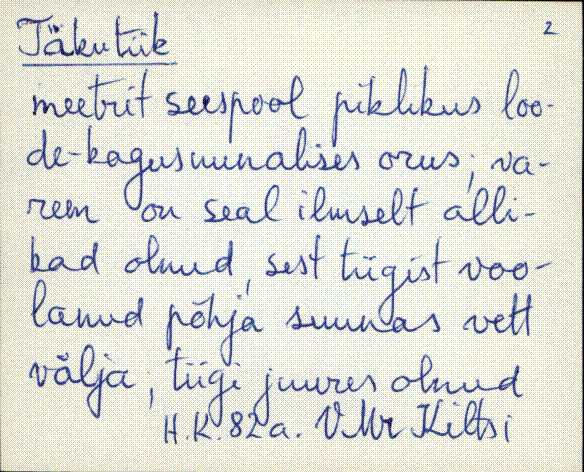 Täkutiik 2
meetrit seespool piklikus loo-
de-kagusuunalises orus; va-
rem on seal ilmselt alli-
kad olnud, sest tiigist voo-
lanud põhja suunas vett
välja; tiigi juures olnud
H.K. 82 a. VMr Kiltsi